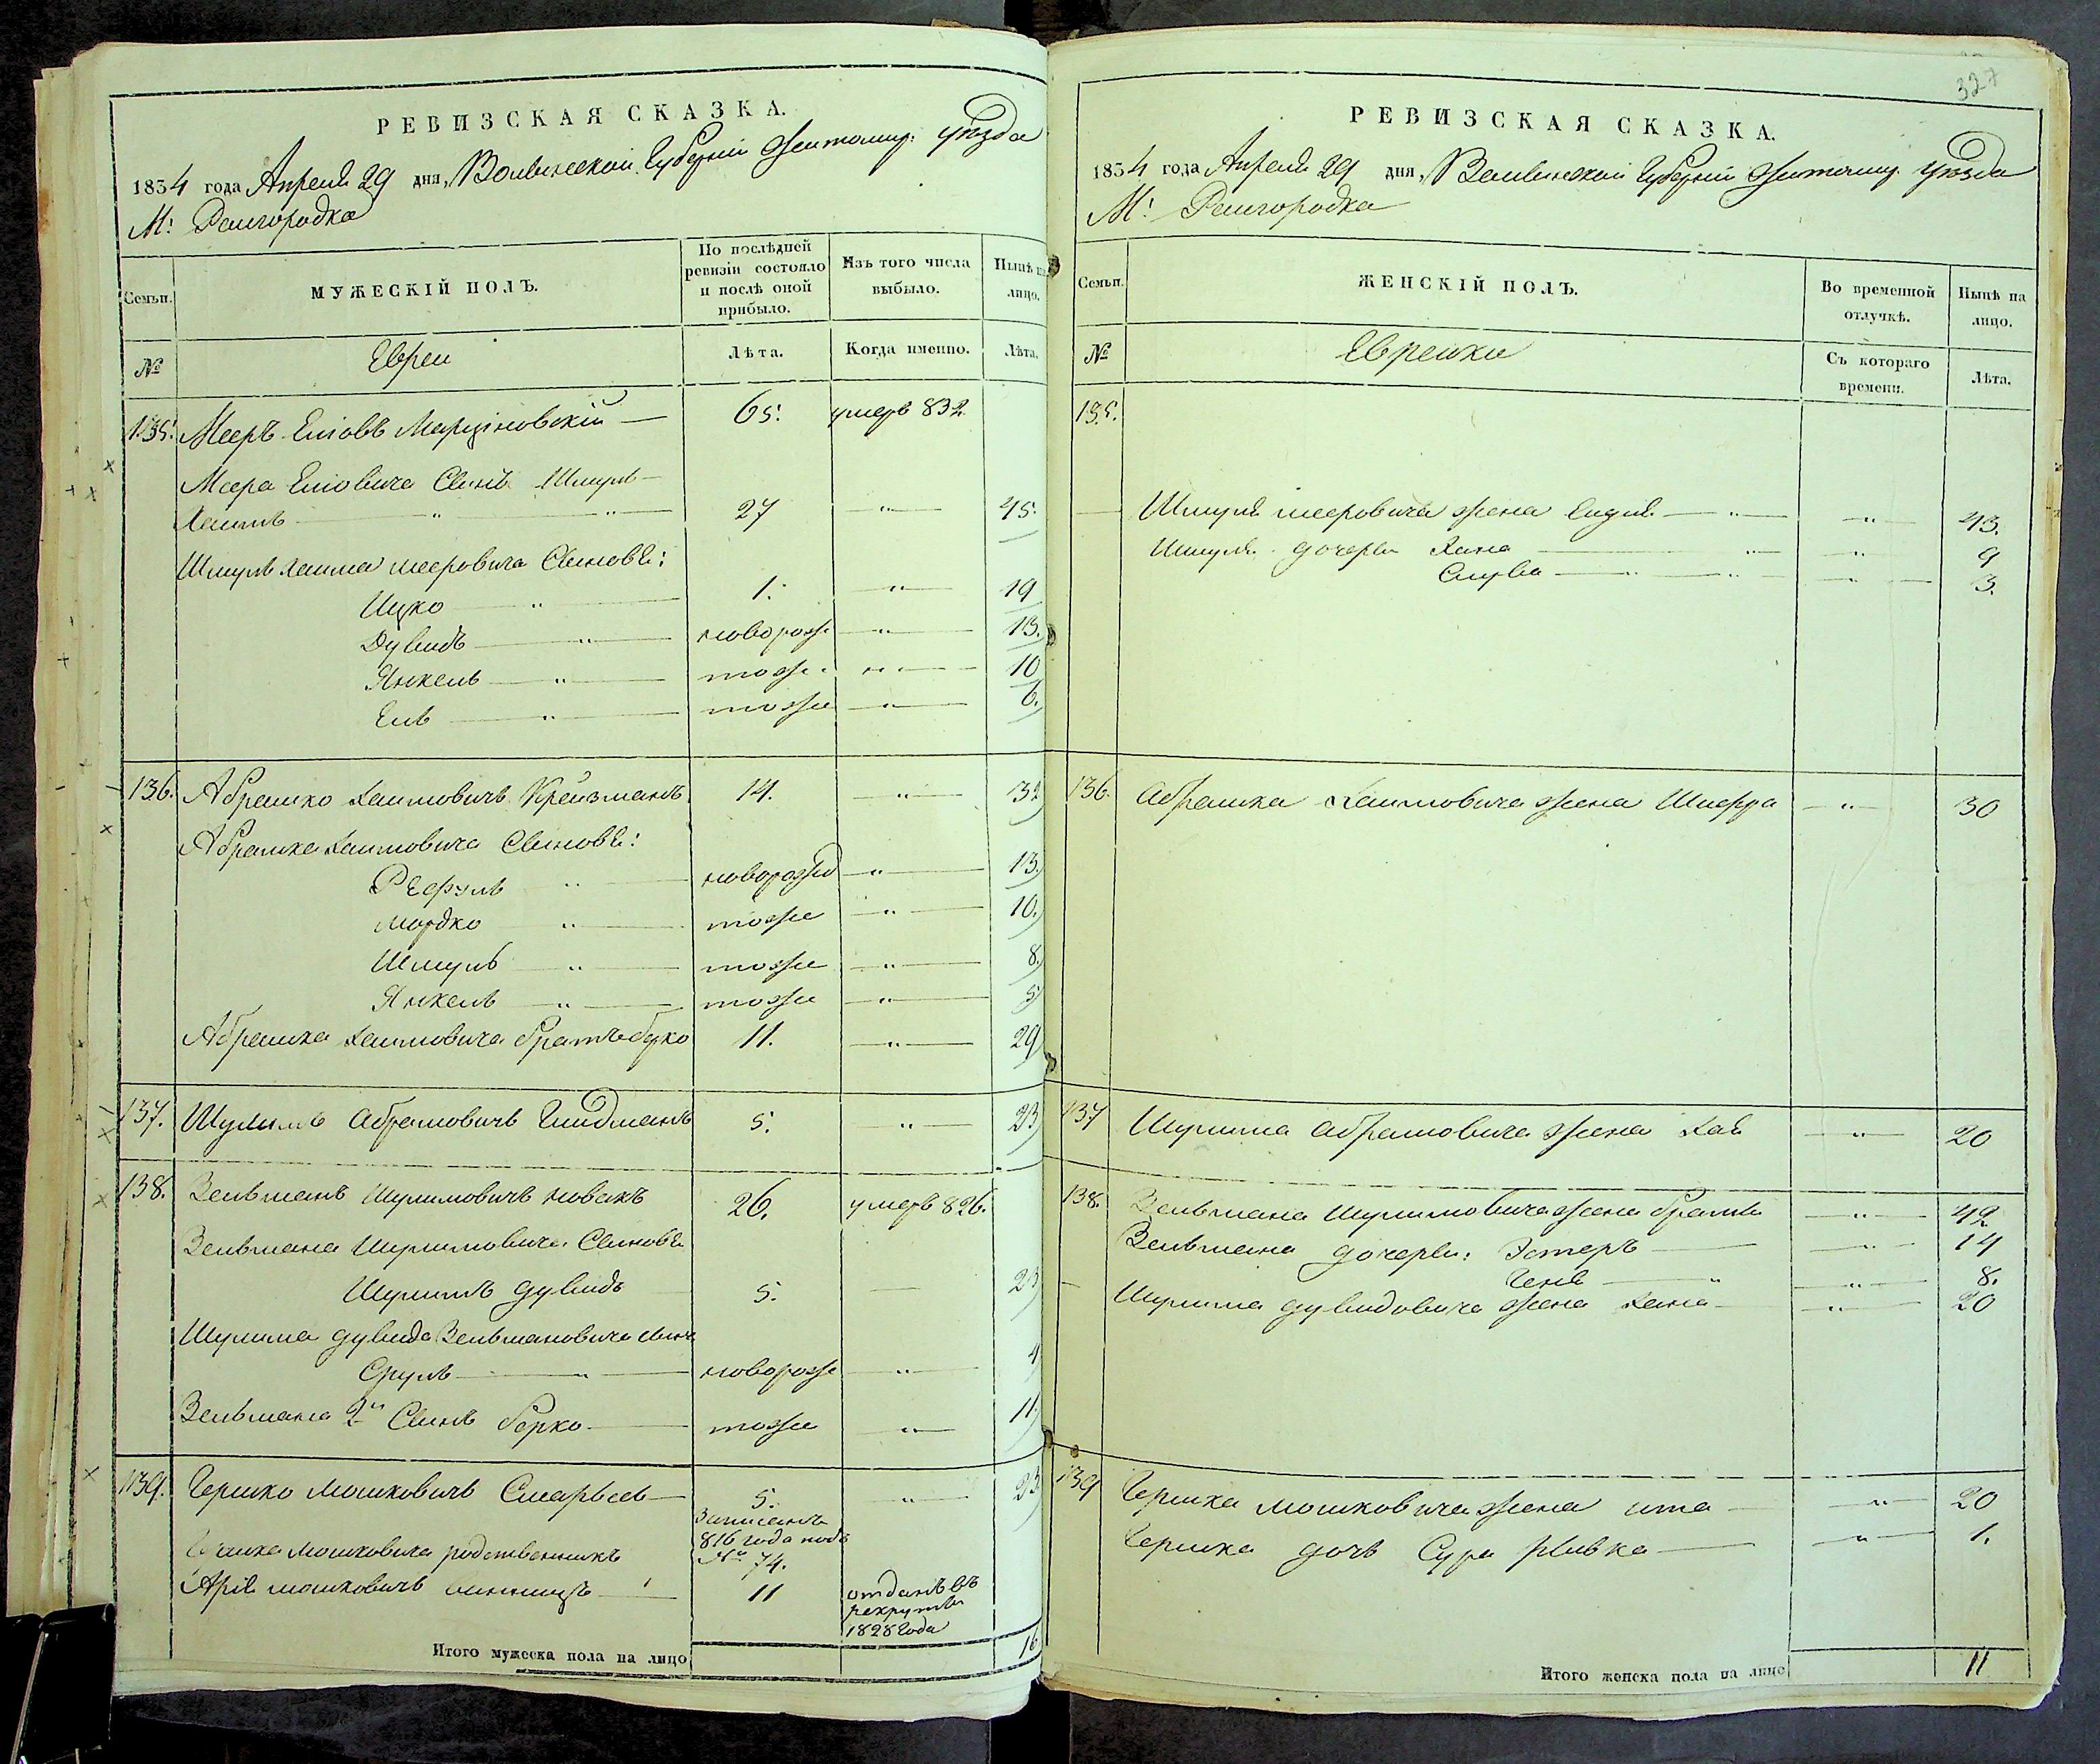 РЕВИЗСКАЯ СКАЗКА.
1834 года Апреля 29 дня, Волынской Губернiи Житомир: уѣзда
М: Раигородка
Семьи.
МУЖЕСКІЙ ПОЛЪ.
По послѣдней ревизіи состояло и послѣ оной прибыло.
Изъ того числа выбыло.
Нынѣ на лицо.
№
Евреи
Лѣта.
Когда именно.
Лѣта.
135. Мееръ Еліовъ 65. умеръ 832
Меера Еліовича Сынъ Шмуль
Хаимъ " " 27 " 45.
Шмуль Хаима мееровича Сыновья:
Ицко " 1. " 19
Дувидъ " новорож " 13.
Янкель " тоже " 10
Ель " тоже " 6.
136. Абрамко Хаимовичъ Крейзманъ 14. " 32
Абрамка Хаимовича Сыновья:
Рефуль " новорожд " 13.
Мордко " тоже " 10.
Шмуль " тоже " 8.
Янкель " тоже " 5
Абрамка Хаимовича братъ берко 11. " 29
137. Шулимъ Абрамовичъ 5. " 23
138. Зельманъ Шулимовичъ Новакъ 26. умеръ 826.
Зельмана Шулимовича Сыновья
Шулимъ дувидъ 5. 23
Шулима дувида Зельмановича сынъ
Сруль " новорож " 4
Зельмана 2й Сынъ Берко тоже " 11
139. Гершко Мошковичъ 5. " 23
Записанъ
816 года подъ
№ 74.
Гершка Мошковича родственникъ
Арія мошковичъ 11 отданъ въ
рекруты
1828 года
Итого мужеска пола на лицо 16
327
РЕВИЗСКАЯ СКАЗКА.
1834 года Апреля 29 дня, Волынской Губернiи Житомир. уѣзда
М: Раигородка
Семьи.
ЖЕНСКІЙ ПОЛЪ.
Во временной отлучкѣ.
Нынѣ на лицо.
№
Еврейки
Съ котораго времени.
Лѣта.
135.
Шмуля мееровича жена Ендля " " 43.
Шмуля дочери Хана " " 9
" " " 3.
136. Абрамка Хаимовича жена Шифра " 30
137 Шулима Абрамовича жена Хая " 20
138. Зельмана Шулимовича жена " 42
Зельмана дочери: Эстеръ " 14
Геня " " 8.
Шулима дувидовича жена Хана " 20
139 Гершка мошковича жена ита " 20
Гершка дочь Сура Ривка " 1.
Итого женска пола на лицо 11